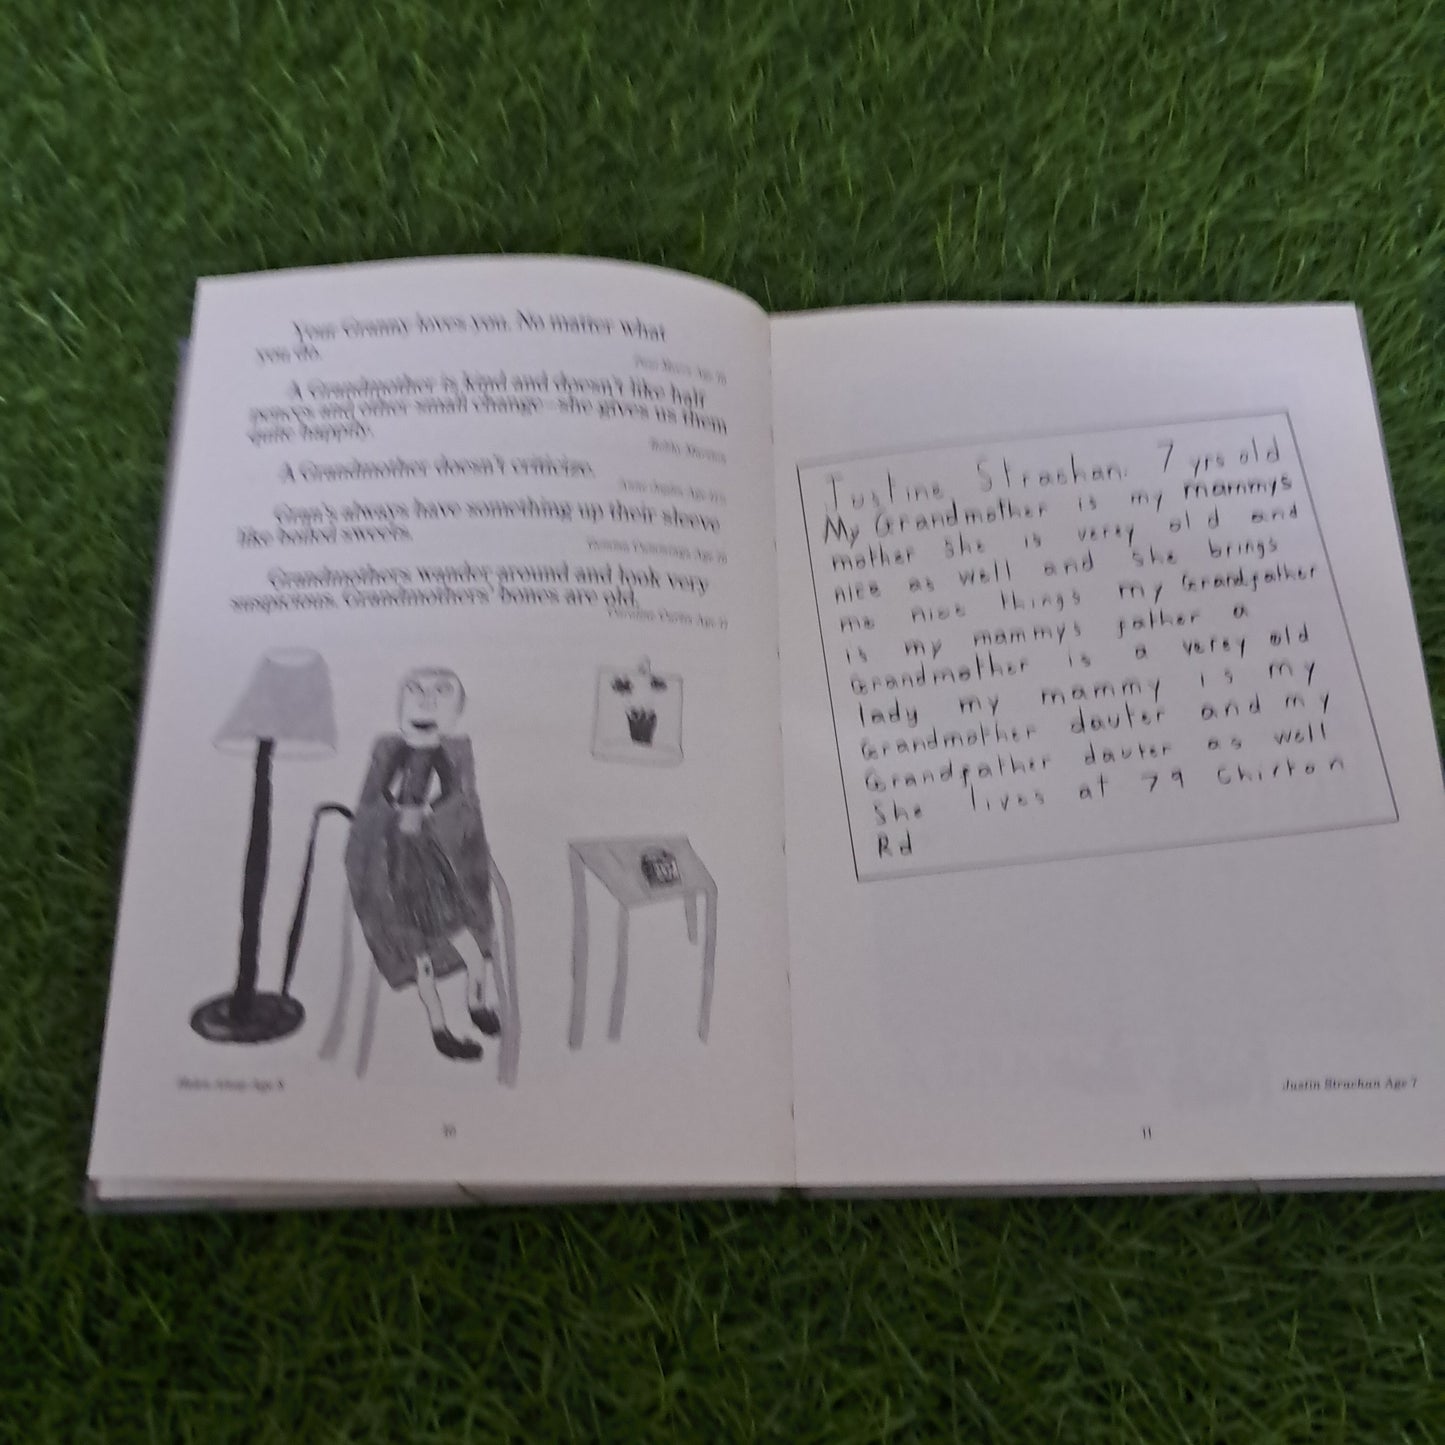 Your Granny loves you. No matter what
you do.
A Grandmother is kind and doesn't like half
pences and other small change—she gives us them
quite happily.
A Grandmother doesn't criticize.
Gran's always have something up their sleeve
like boiled sweets.
Grandmothers wander around and look very
suspicious. Grandmothers' bones are old.
Age 8
10
Justine Strachan. 7 yrs old
My Grandmother is my mammys
mother she is verey old and
nice as well and she brings
me nice things my Grandfather
is my mammys father a
Grandmother is a verey old
lady my mammy is my
Grandmother dauter and my
Grandfather dauter as well
She lives at 79 Chirton
Rd
Justin Strachan Age 7
11